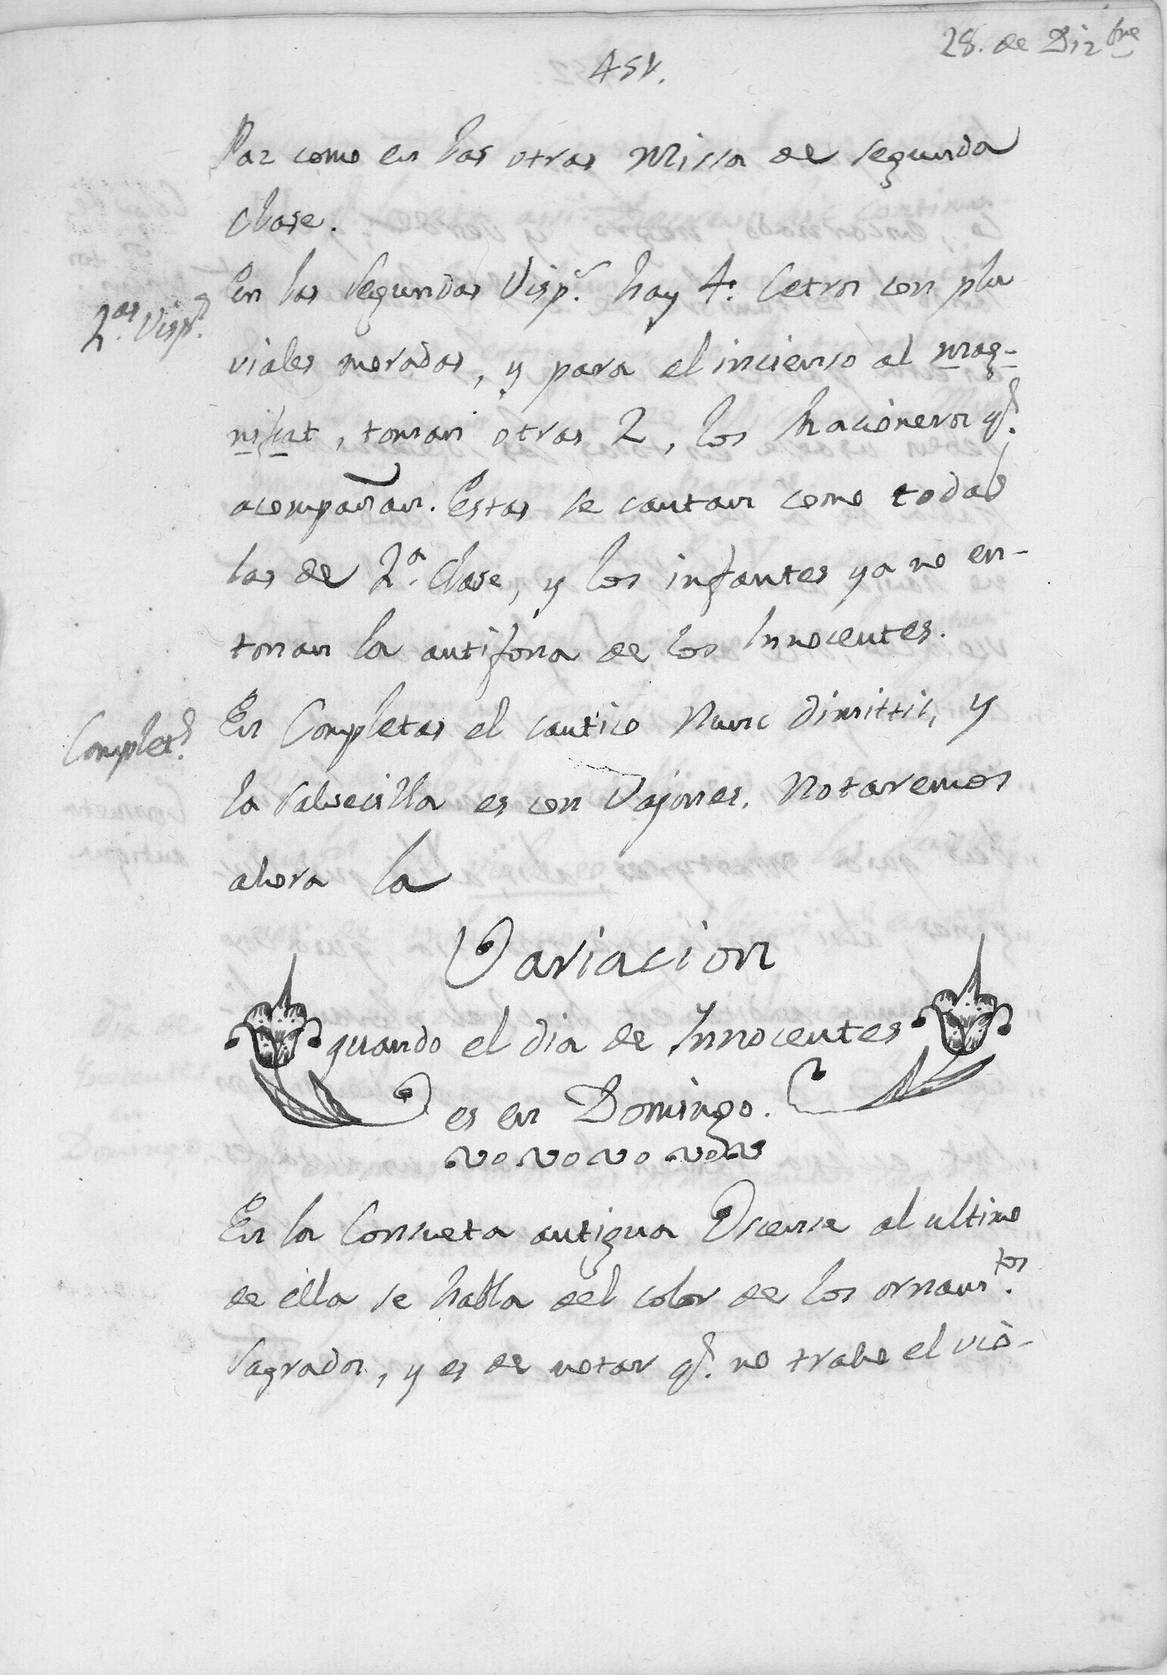 28. de Diz.bre
451.
Paz como en las otras Missa de segunda
clase.
2.as Visp.s
En las segundas Visp.s hay 4. Cetros con plu
viales moradas, y para el incienso al Mag-
nificat, toman otras 2, los Racioneros q.e
acompañan. Estas se cantan como todas
las de 2.a Clase, y los infantes ya no en-
tonan la antifona de los Innocentes.
Complet.s
En Completas el cantico Nunc dimittis, y
la Salvecilla es con Vajones. Notaremos
ahora la
Variacion
quando el dia de Innocentes
es en Domingo.
En la Consueta antigua Oscense al ultimo
de ella se habla del color de los ornam.tos
Sagrados, y es de notar q.e no trahe el vio-